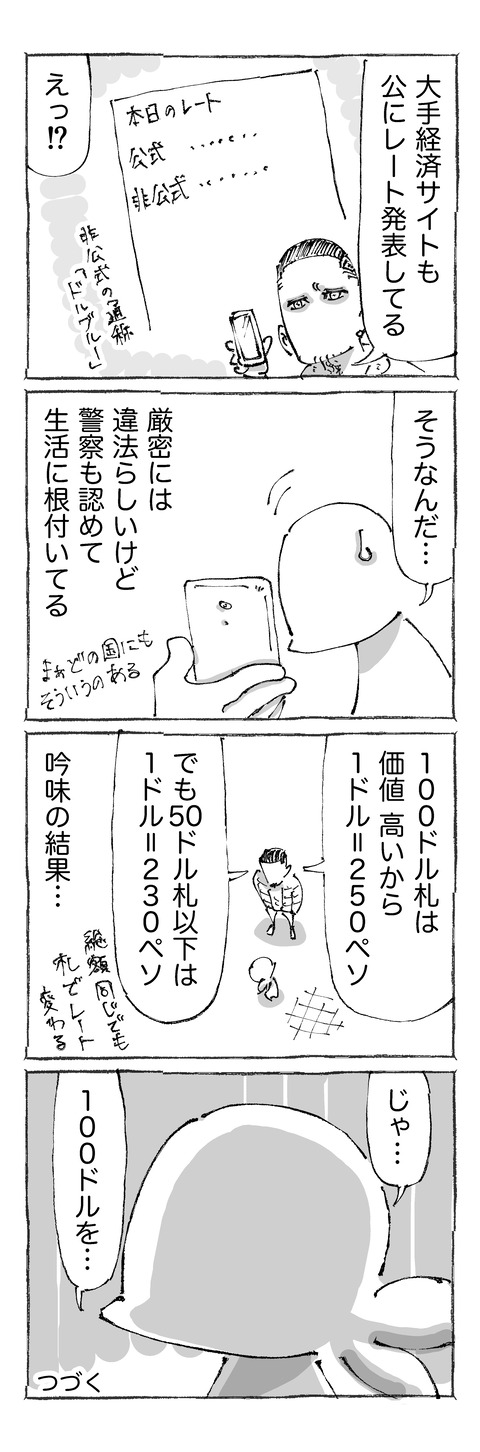 大手経済サイトも
公にレート発表してる
本日のレート
公式 ‥‥‥‥
非公式 ‥‥‥‥
えっ!?
非公式の通称
「ドルブルー」
そうなんだ…
厳密には
違法らしいけど
警察も認めて
生活に根付いてる
まぁどの国にも
そういうのある
100ドル札は
価値 高いから
1ドル=250ペソ
でも50ドル札以下は
1ドル=230ペソ
吟味の結果…
総額同じでも
札でレート
変わる
じゃ…
100ドルを…
つづく